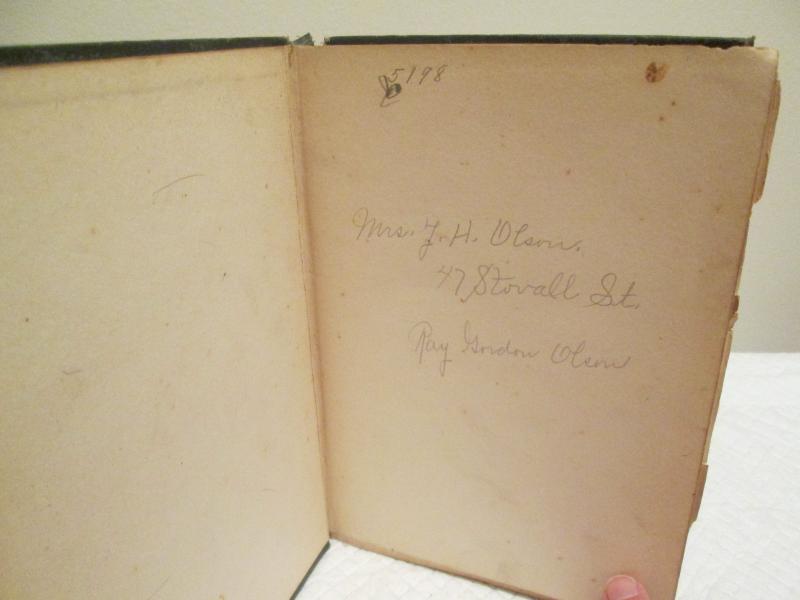 5198
Mrs. J. H. Olson.
47 Stovall St.
Ray Gordon Olson